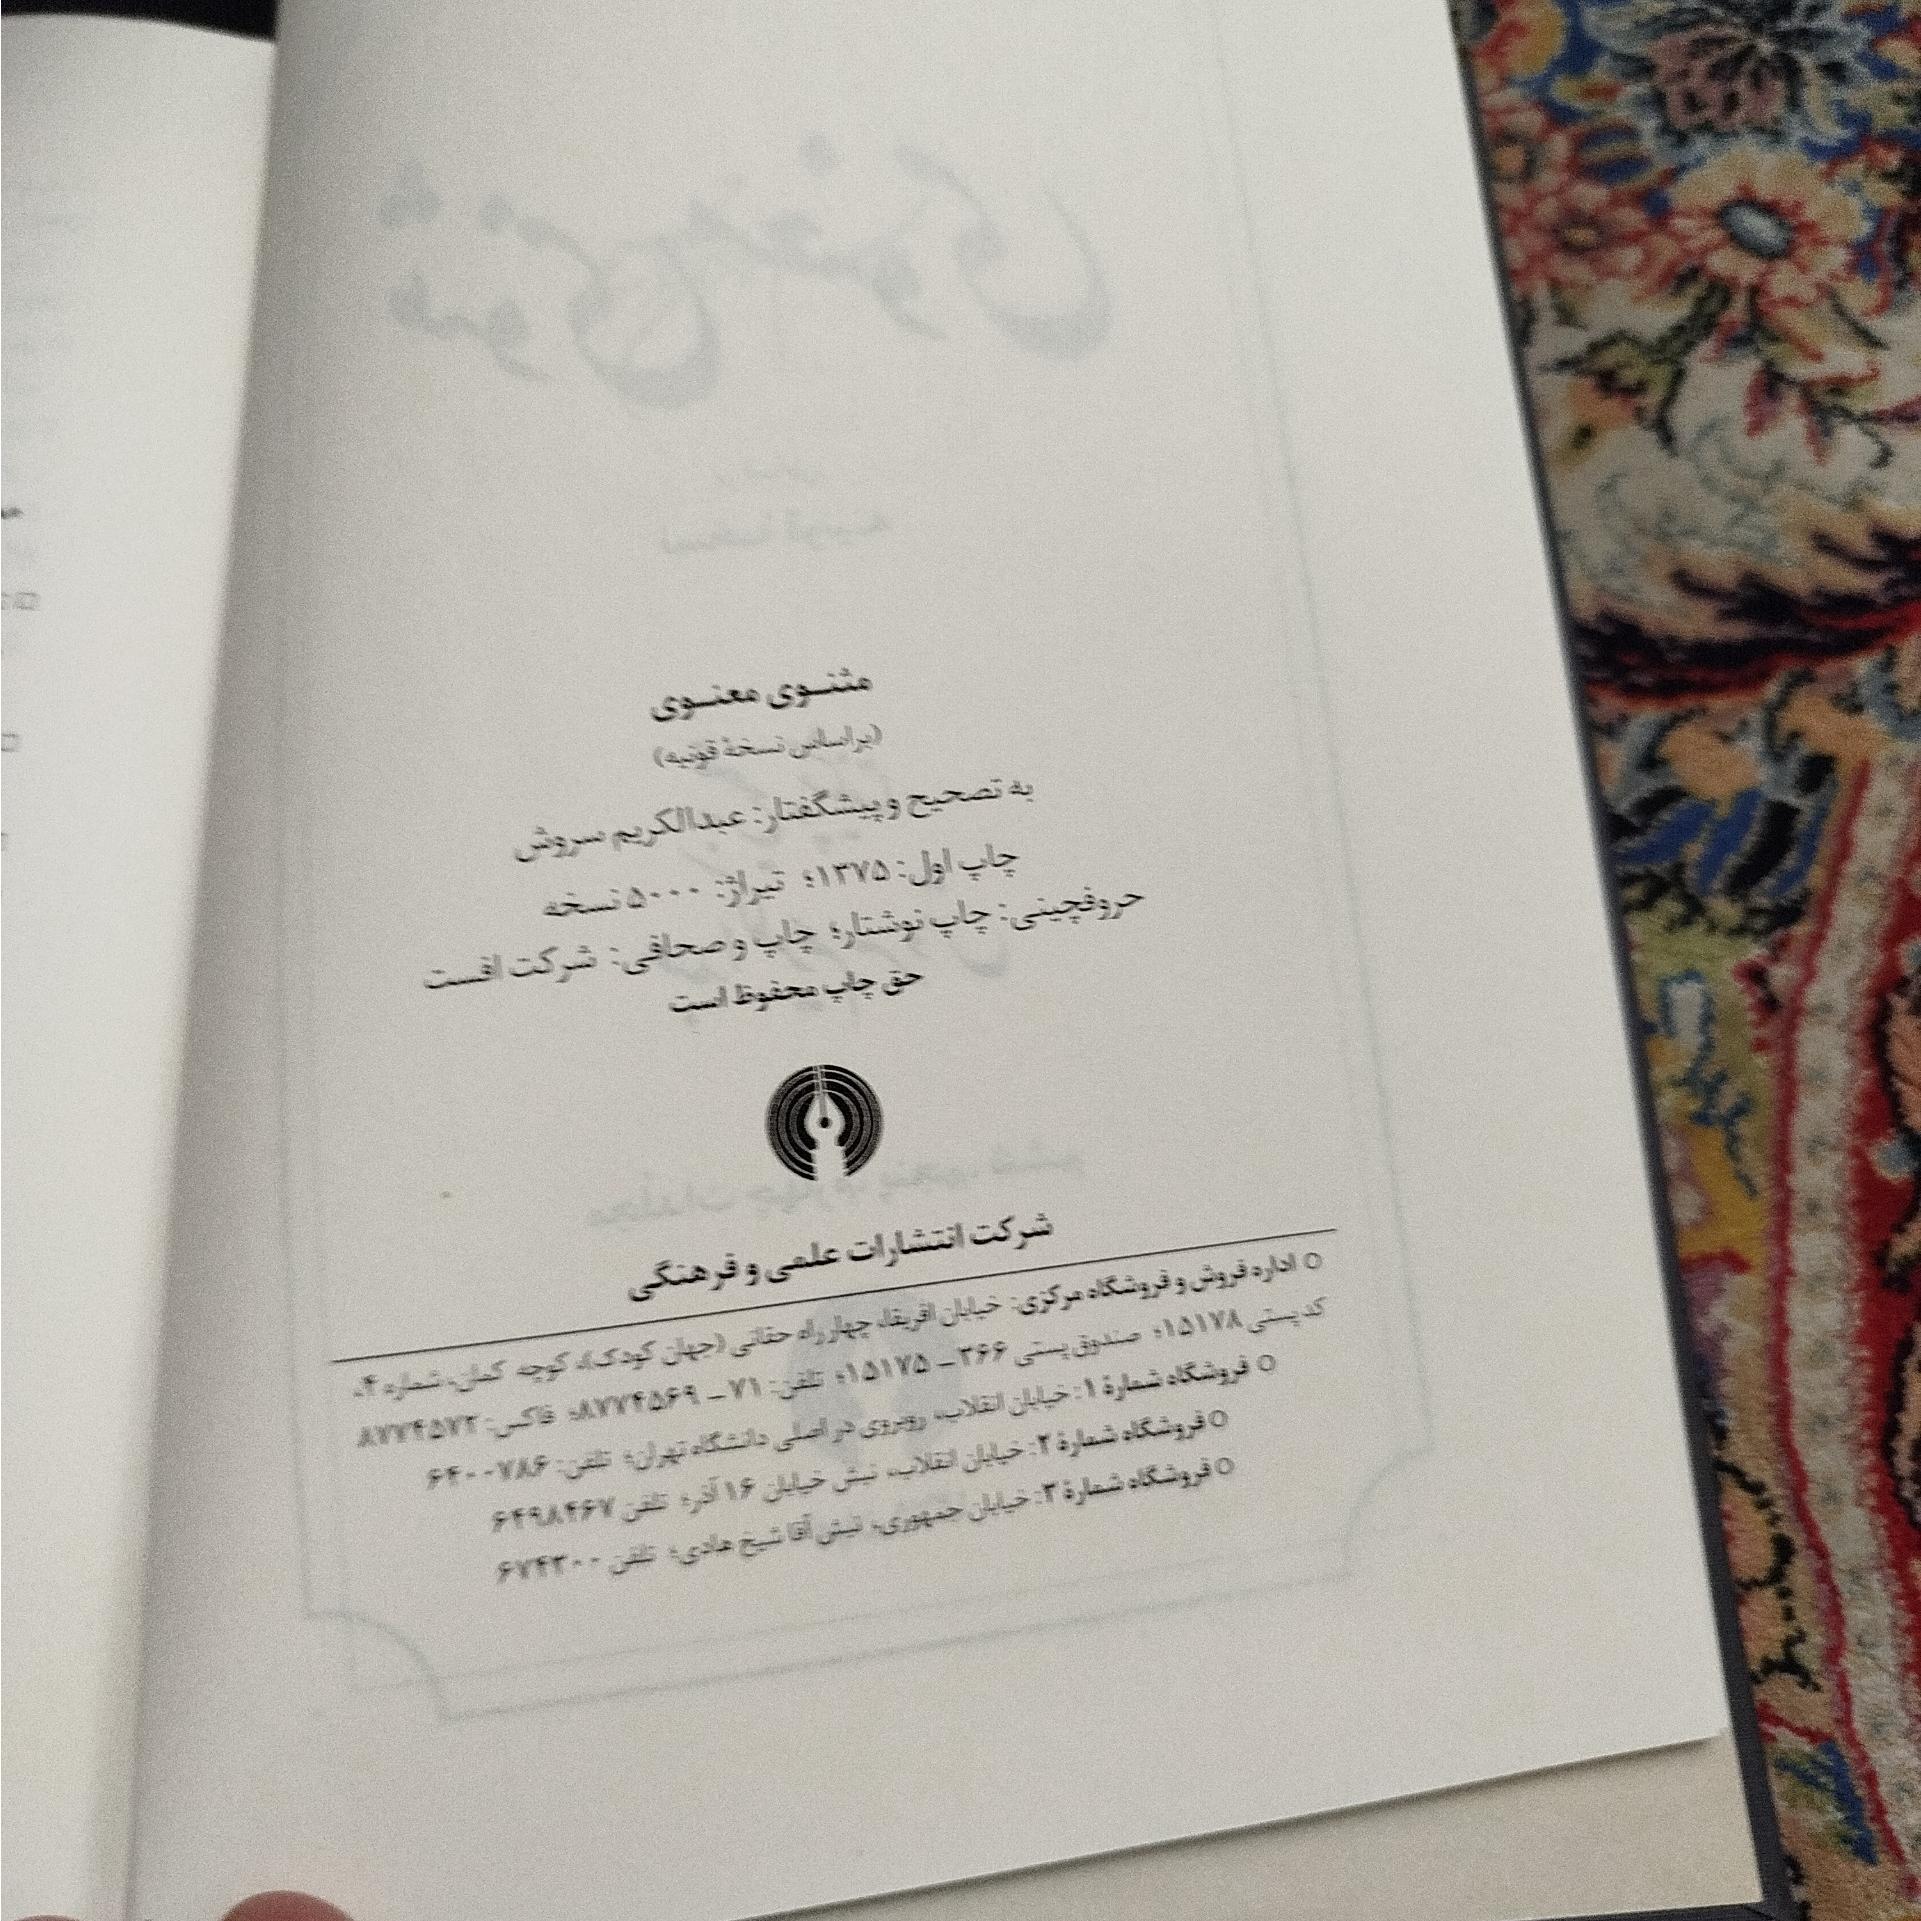 مثنوی معنوی
(براساس نسخهٔ قونیه)
به تصحیح و پیشگفتار: عبدالکریم سروش
چاپ اول: ۱۳۷۵؛ تیراژ: ۵۰۰۰ نسخه
حروفچینی: چاپ نوشتار؛ چاپ و صحافی: شرکت افست
حق چاپ محفوظ است
شرکت انتشارات علمی و فرهنگی
○ اداره فروش و فروشگاه مرکزی: خیابان افریقا، چهارراه حقانی (جهان کودک)، کوچه کمان، شماره ۴،
کدپستی ۱۵۱۷۸؛ صندوق پستی ۳۶۶ ـ ۱۵۱۷۵؛ تلفن: ۷۱ ـ ۸۷۷۴۵۶۹؛ فاکس: ۸۷۷۴۵۷۲
○ فروشگاه شمارهٔ ۱: خیابان انقلاب، روبروی در اصلی دانشگاه تهران؛ تلفن: ۶۴۰۰۷۸۶
○ فروشگاه شمارهٔ ۲: خیابان انقلاب، نبش خیابان ۱۶ آذر؛ تلفن ۶۴۹۸۴۶۷
○ فروشگاه شمارهٔ ۳: خیابان جمهوری، نبش آقا شیخ هادی؛ تلفن ۶۷۴۳۰۰